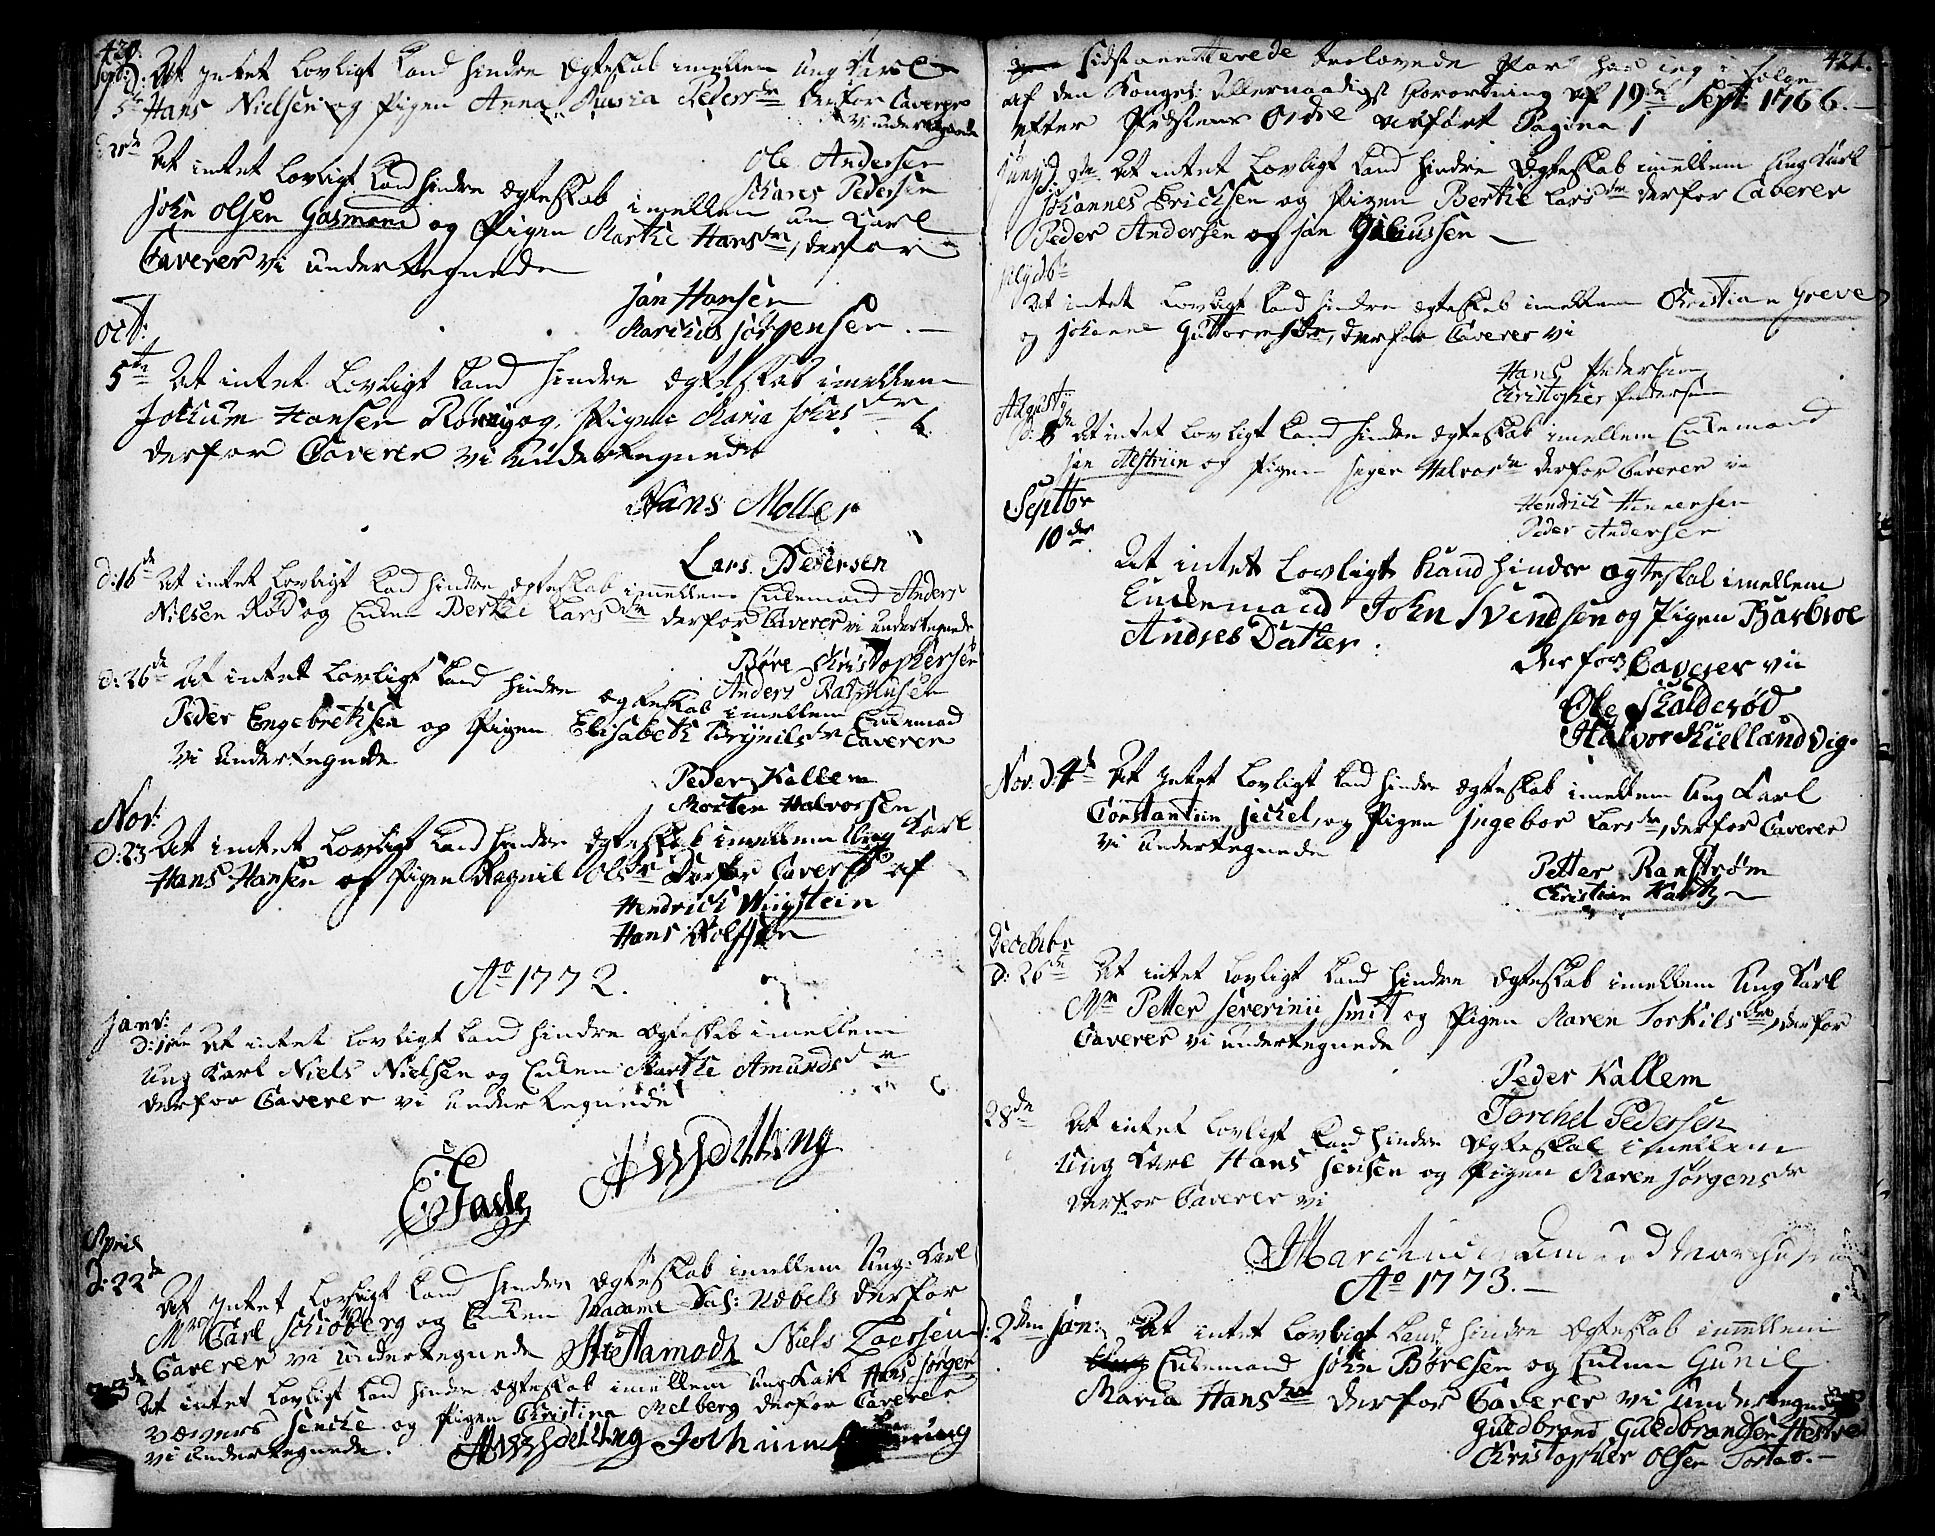 420.
Sept: d: At Intet Lovligt kand hindre Egteskab imellem Ung Karl
5te Hans Nielsen og Pigen Anna Maria Pedersdr derfor Caverer
vi undertegnede
Ole Andersen
Hans Pedersen
At intet Lovligt kand hindre Egteskab imellem Un Karl
John Olsen Gasmand og Pigen Marthe Hansdr, derfor
Caverer vi undertegnede
Jan Hansen
Marcus Jørgensen.
Oct:
5te At intet Lovligt kand hindre Egteskab imellem
Jochum Hansen Rønning og Pigen Maria Johnsdr
derfor Caverer vi undertegnede
Hans Moller
Lars Pedersen
d: 16de At intet Lovligt kand hindre Egteskab imellem Enkemand Anders
Nilsen Rød og Enken Berthe Larsdr derfor Caverer vi undertegnede
Børe Christophersen
Anders Rasmusen
d: 26de At intet Lovligt kand hindre Egteskab imellem Enkemand
Peder Engebrethsen og Pigen Elisabeth Brynilsdr Caverer
vi undertegnede
Peder Kallem
Morten Halvorsen
Nov:
d: 23 At intet Lovligt kand hindre Egteskab imellem Ung Karl
Hans Hansen og Pigen Ragnil Olsdr Derfor Caveres af
Hendrich Wiigstein
Hans Rolfsen
Ao 1772.
Janr:
At intet Lovligt kand hindre Egteskab imellem
Ung Karl Niels Nielsen og Enken Marthe Amundsdr
derfor Caverer vi undertegnede
April
d: 22de
At Intet Lovligt kand hindre Egteskab imellem Ung Karl
Mr Carl Schiøberg og Enken Madame Nobels derfor
Caverer vi undertegnede Niels Laersen
23de At intet Lovligt kand hindre Egteskab imellem Ung Karl Hans Jørgen
Sencke og Pigen Christina Melberg derfor Caverer
vi undertegnede.
421.
Sidstanførte trolovede Par har jeg i følge
af den Konges: Allernaadigst Forordning af 19de Sept: 1766.
efter Ordre udført Pagina 1
Junij d. At intet Lovligt kand hindre Egteskab imellem Ung Karl
Johannes Erichsen og Pigen Berthe Larsdr derfor Caverer
Peder Andersen og Jan Giliussen
At intet Lovligt kand hindre Egteskab imellem Christian Greve
og Johanne Guttormsdr, derfor Caverer vi
Hans Pedersen
Christopher Pedersen
Augustij
At intet Lovligt kand hindre Egteskab imellem Enkemand
Jan Alstrin og Pigen Halvorsdr derfor Caverer vi
Hendrich Hannersen
Peder Andersen
Septbr
10de
At intet Lovligt kand hindre Egteskab imellem
Enckemand John Svendsen og Pigen Barbroe
Andres Datter.
derfor Caverer vii
Ole Skalderød
Halvor Kiellandvig.
Nov: d: 4de At Intet Lovligt kand hindre Egteskab imellem Ung Karl
Constantin Jechel, og Pigen Ingebor Larsdr, derfor Caverer
vi undertegnede
Petter Ranstrøm
Christian
Decebbr
d: 26de At intet Lovligt kand hindre Egteskab imellem Ung Karl
Mr Petter Severinii Smit og Pigen Maren Torkilsdr derfor
Caverer vi undertegnede
Peder Kallem
Torchel Pedersen
28de At intet Lovligt kand hindre Egteskab imellem
Ung Karl Hans Jensen og Pigen Maren Jørgensdr
derfor Caverer vi
Ao 1773.
d: 2den Jan: At intet Lovligt kand hindre Egteskab imellem
Enkemand John Børesen og Enken Gunil
Maria Hansdr derfor Caverer vi undertegnede
Guldbrand Guldbrandsen
Christopher Olsen